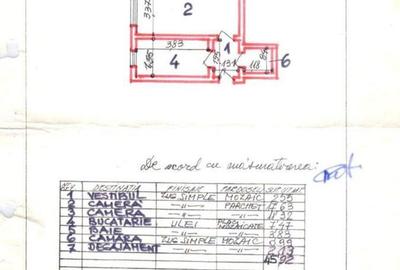 3.37
2
3.83
1
4
6
1.18
De acord cu măsurătoarea:
DESTINAȚIA FINISAJ PARDOSELI
1 VESTIBUL ZUG. SIMPLE MOZAIC 2.55
2 CAMERĂ —"— PARCHET 17.63
3 CAMERA —"— —"— 11.32
4 BUCĂTĂRIE ULEI 7.47
5 BAIE —"— 3.83
6 CĂMARA ZUG SIMPLE MOZAIC 0.99
7 DEGAJAMENT —"— —"—
45.93